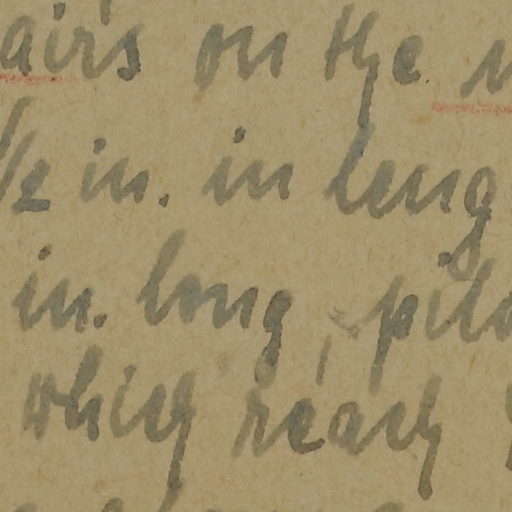 airs on the
1/2 in. in leng
in. long, pilo
which reach